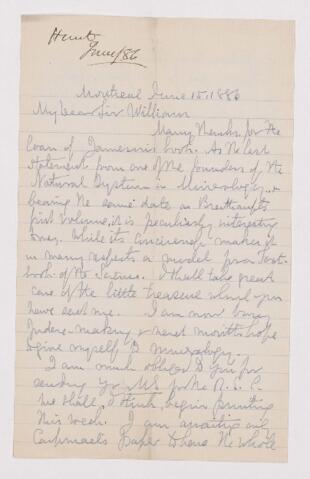 Hunt
June/86
Montreal June 15, 1886
My dear Sir William
Many thanks for the
loan of Jameson's book. As the last
statement from one of the founders of the
Natural System in Mineralogy &
bearing the same date as Breithaupt's
first volume, it is peculiarly interesting
to me, while its conciseness makes it
in many respects a model for a text-
book of the science. I shall take great
care of the little treasure which you
have sent me. I am now busy
Index-making & next month hope
to give myself to mineralogy.
I am much obliged to you for
sending yr MS for the R.S.C.
We shall, I think, begin printing
this week. I am awaiting only
Carpmael's paper to have the whole